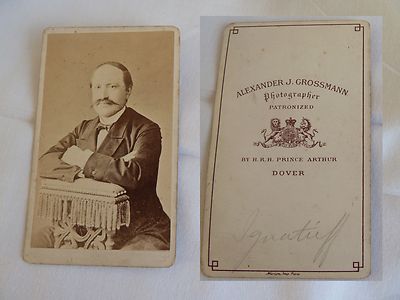 ALEXANDER J. GROSSMANN
Photographer
PATRONIZED
BY H.R.H. PRINCE ARTHUR
DOVER
Ignatieff
Marion, Imp. Paris